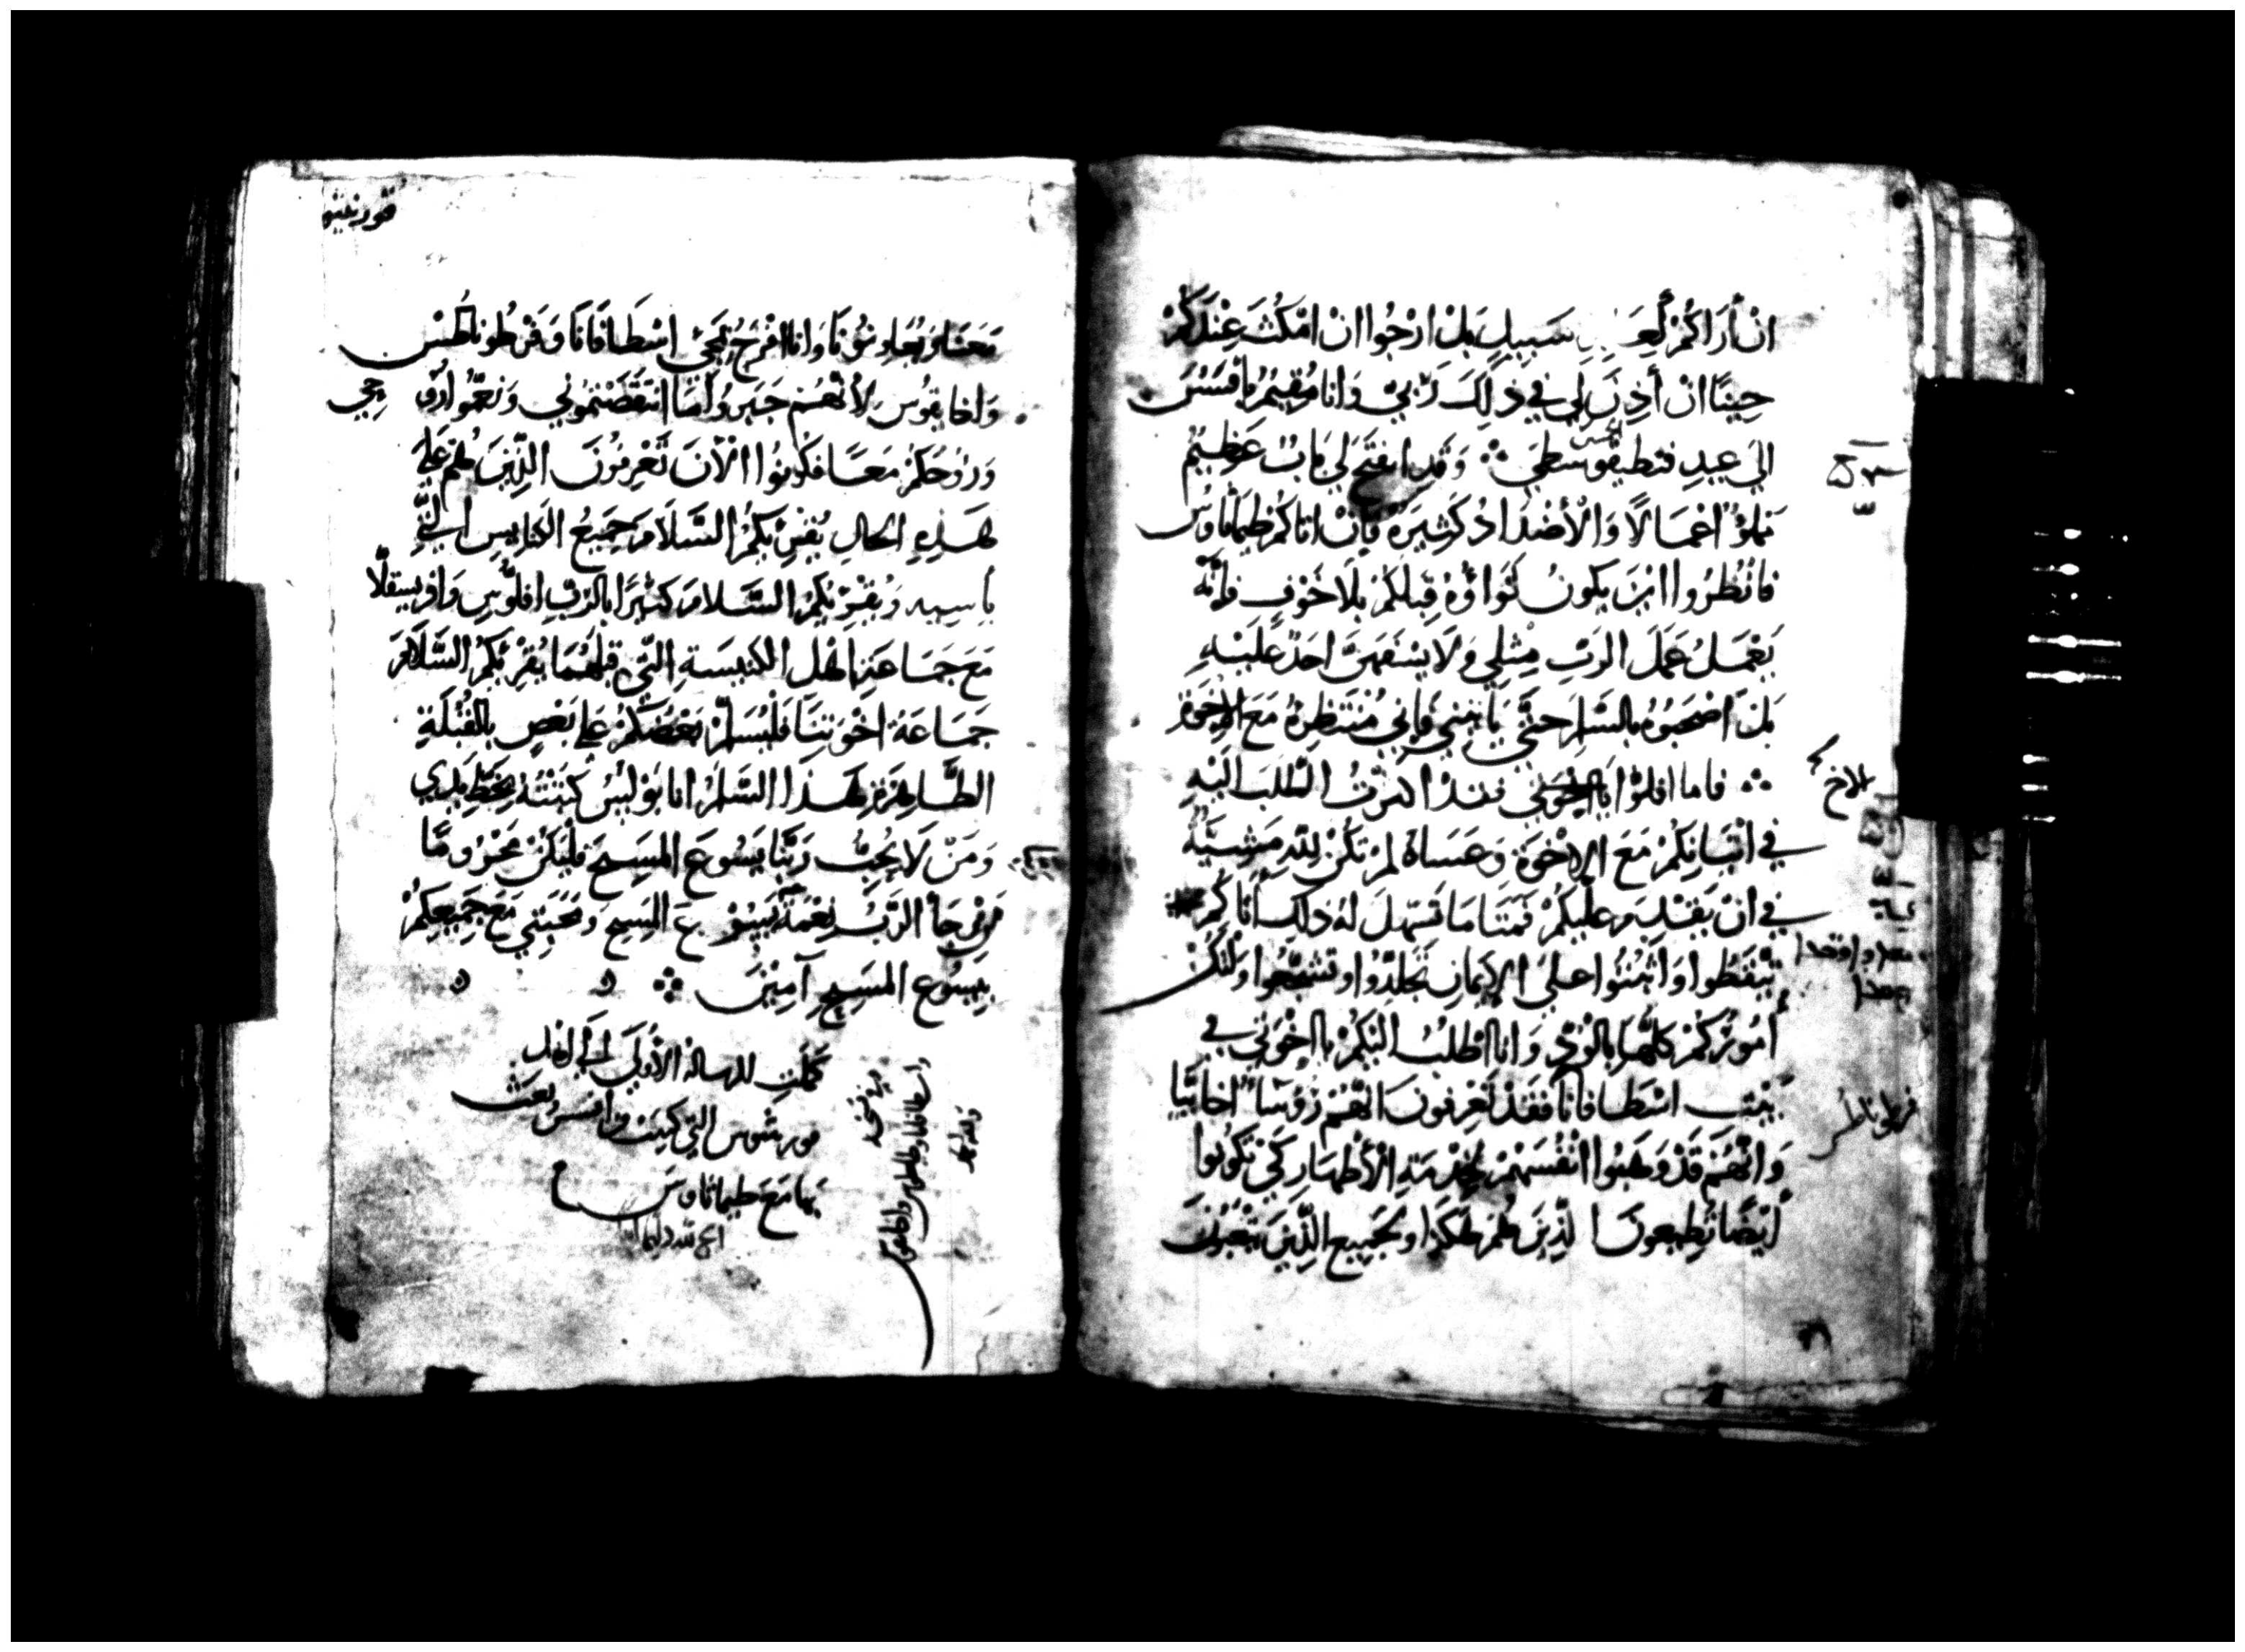 ان أَرَاكُمْ سَبِيلٍ بَلْ ارْجُوا انْ امْكُثَ عِنْدَكُمْ
حِينًا انْ أَذِنَ لِي فِي ذَلِكَ رَبِّي وَانَا مُقِيمٌ بِأَفَسَسَ
الَي عِيدِ وَقَد انفَتَحَ لِي بَابٌ عَظِيمٌ
أَعْمَالًا وَالْأَضْدَادُ كَثِيرَةٌ فَإِنْ اتَاكُمْ طِيمَاثَاوُس
فَانْظُرُوا ايْنَ يَكُونُ ثَوَاؤُهُ قِبَلَكُمْ بِلَا خَوْفٍ فَإِنَّهُ
يَعْمَلُ عَمَلَ الرَبِّ مِثْلِي وَلَا احَدٌ عَلَيْهِ
بَلْ اصْحَبُوهُ بِالسَّلَمِ حَتَّى يَأْتِيَنِي فَإِنِّي مُنْتَظِرُهُ مَعَ الإِخْوَةِ
فاما افلوا يَا اخْوَتِي فَقَدْ اكثرْتُ الطَّلَبَ الَيْهِ
فِي اتْيَانِكُمْ مَعَ الإِخْوَةِ وَعَسَاهُ لَمْ تَكُنْ لِلَّهِ مَشِيَّةٌ
فِي انْ يَقْدَمَ عَلَيْكُمْ فَمَتَا مَا تَسَهَّلَ لَهُ ذَلِكَ أَتَاكُمْ
تَيَقَّظُوا وَاثْبُتُوا عَلَى الإِيمَانِ تَجَلَّدُوا وتَشَجَّعُوا وَلْتَكُنْ
أُمُورُكُمْ كُلُّهَا بِالْوُدِّ وَانَا اطْلُبُ الَيْكُمْ يا اخْوَتِي فِي
بَيْتِ اسْطَافَانَا فَقَدْ تَعْرِفُونَ انَّهُمْ رُؤَسَاءُ اخَايِيَّا
وَانَّهُمْ قَدْ وَهَبُوا انْفُسَهُمْ لِخِدْمَةِ الْأَطْهَارِ كَيْ تَكُونُوا
أَيْضًا تُطِيعُونَ الَّذِينَ هُمْ هَكَذَا وَلِجَمِيعِ الَّذِينَ يَتْعَبُونَ
فرطوناطس
مَعَنَا وَيُعَاوِنُونَا وَانَا افْرَحُ بِمَجِئِ اسْطَافَانَا وَفَرْطُونَاطُس
وَاخَايِقُوسَ لِأَنَّهُمْ جَبَرُوا مَا انْتَقَصْتُمُونِي وَنَعَّمُوا رُوحِي
وَرُوحَكُمْ مَعًا فَكُونُوا الْآنَ تَعْرِفُونَ الَّذِينَ هُمْ عَلَى
هَذِهِ الحَالِ يُقْرِيكُمُ السَّلَامَ جَمِيعُ الكنايسِ الَّتِي
بأسيه وَيُقْرِيكُمُ السَّلَامَ كَثِيرًا بِالرَّبِّ افلُوسِ وَافريسقلَّا
مَعَ جَمَاعَةِ اهْلِ الكَنِيسَةِ الَّتِي قِبَلَهُمَا يُقْرِيكُمُ السَّلَامَ
جَمَاعَةُ اخْوَتِنَا فَلْيُسَلِّمْ بَعْضُكُمْ عَلَى بَعْضٍ بِالقُبْلَةِ
الطَّاهِرَةِ هَذَا السَّلَمُ انَا بَوْلُسُ كَتَبْتُهُ بِخَطِّ يَدِي
وَمَنْ لَا يُحِبُّ رَبَّنَا يَسُوعَ المَسِيحَ فَلْيَكُنْ مَحْرُومًا
الرَّبُّ نِعْمَةُ يَسُوع المَسِيحِ وَمَحَبَّتِي مَعَ جَمِيعِكُمْ
بِيَسُوعِ المَسِيحِ آمِينَ
كَمُلَتِ الرسالة الأُولَى الَى اهْلِ
قورنثوس التي كتبت من افسس وبعث
بها مَعَ طيماثاوس